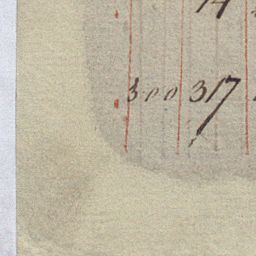 14
300 317